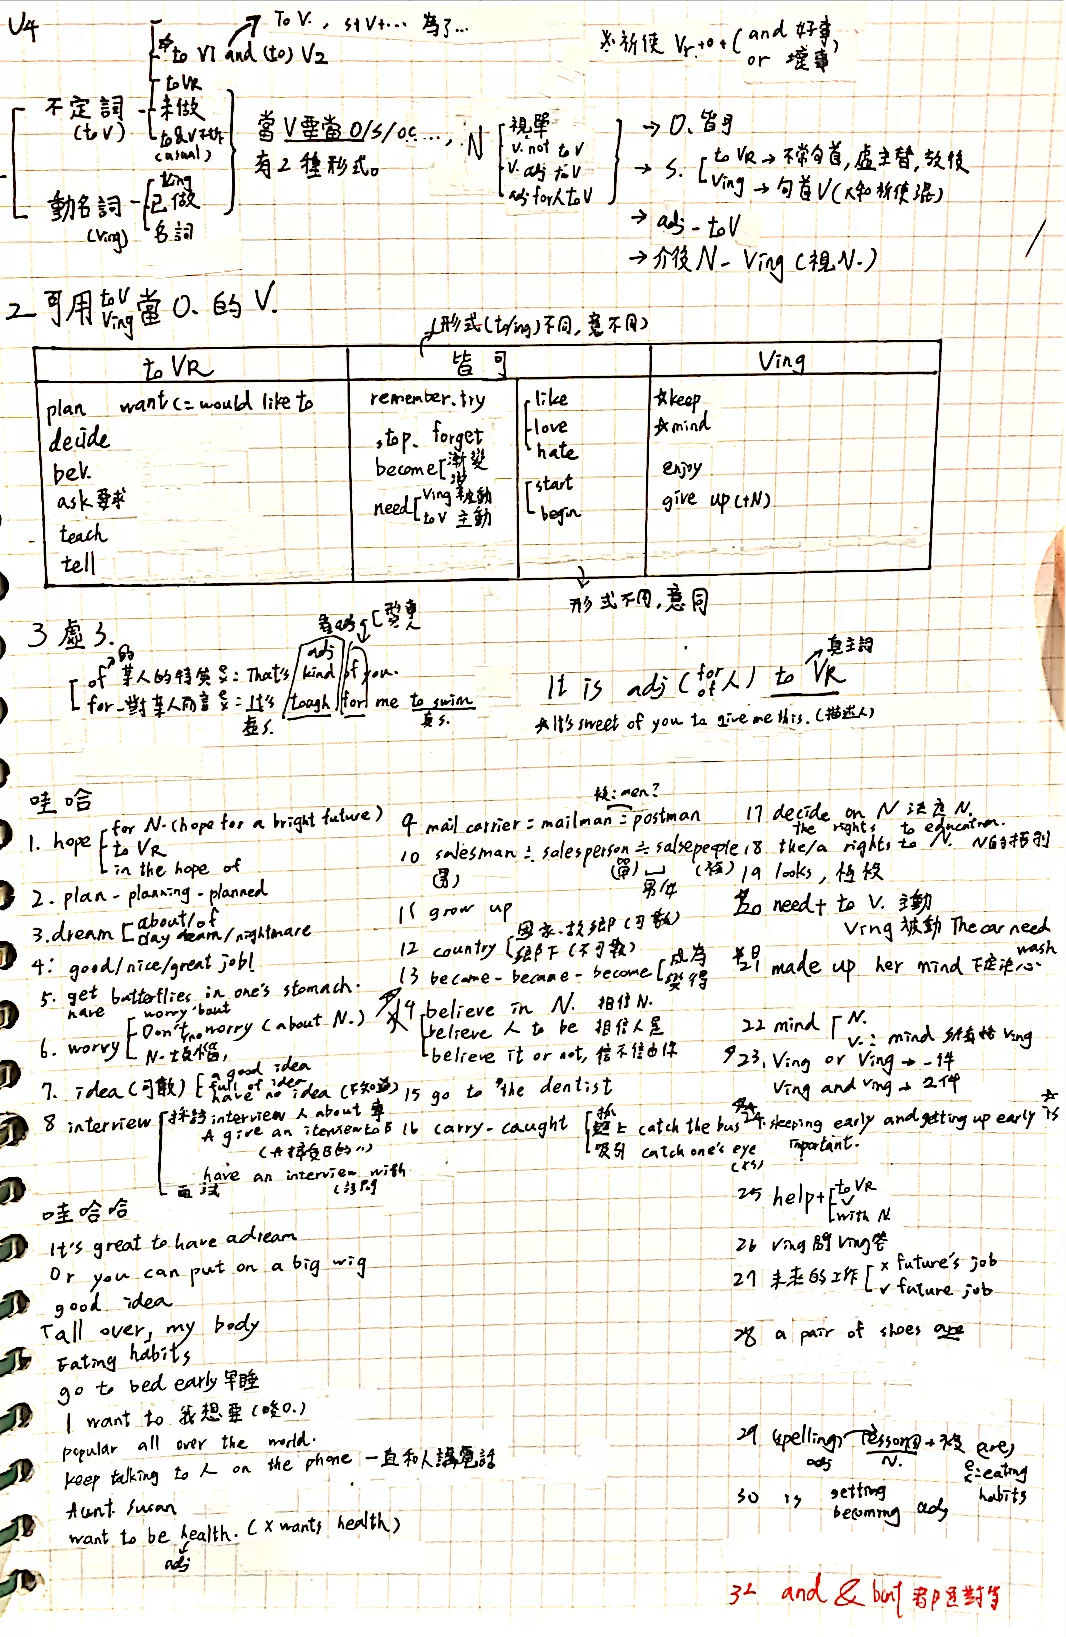 U4
To V. , S+V+... 為了...
to V1 and (to) V2
※祈使 Vr.+o+(and 好事
or 壞事)
不定詞
(to V)
to VR
未做
(casual)
動名詞
(Ving)
已做
名詞
當 V要當 O/S/oc ...,
有2種形式。
N
視單
V. not to V
V. adj to V
adj for人 to V
→ O. 皆可
→ S.
to VR → 不常句首,虛主替,放後
Ving → 句首V(X和祈使混)
→ adj - to V
→ 介後 N - Ving (視N.)
2 可用 to V Ving 當 O. 的 V.
形式(to/ing)不同,意不同
to VR
皆可
Ving
plan want (= would like to
decide
ask 要求
teach
tell
remember. try
stop. forget
become
漸變
need
Ving 被動
to V 主動
like
love
hate
start
begin
☆keep
☆mind
enjoy
give up (+N)
形式不同,意同
3 虛S.
of 某人的特質
: That's kind of you.
adj
for - 對某人而言
: It's tough for me to swim
虛S.
真S.
真主詞
It is adj (for of 人) to VR
☆It's sweet of you to give me this. (描述人)
哇哈
1. hope
for N. (hope for a bright future)
to VR
in the hope of
2. plan - planning - planned
3. dream
about/of
day dream/nightmare
4: good/nice/great job!
5. get butterflies in one's stomach.
have
6. worry
worry 'bout
Don't worry (about N.)
7. idea (可數)
a good idea
full of idea
have no idea (不知道)
8 interview
採訪 interview 人 about 事
A give an iterview to B
面試
have an interview with
9 mail carrier = mailman = postman
men?
10 salesman ≒ salesperson ≒ salsepeople
(男)
(單)
男/女
(複)
11 grow up
12 country
國家. 故鄉 (可數)
鄉下 (不可數)
13 became - became - become
成為
變得
14
believe in N. 相信N.
believe 人 to be 相信人是
believe it or not, 信不信由你
15 go to the dentist
16 carry - caught
趕上 catch the bus
吸引 catch one's eye
17 decide on N 決定N.
the rights to education.
18 the/a rights to N.
19 looks,
20 need + to V. 主動
Ving 被動 The car need wash
21 made up her mind 下定決心
22 mind
N.
V. : mind 所有格 Ving
23. Ving or Ving → 一件
Ving and Ving → 2件
24. sleeping early and getting up early is
important.
25 help +
to VR
V
with N
26 Ving 問 Ving答
27 未來的工作
x future's job
v future job
28 a pair of shoes are
29 (spelling)
adj
N.
(are)
eating
habits
30 is getting
becoming adj
哇哈哈
It's great to have a dream
Or you can put on a big wig
good idea
all over, my body
Eating habits
go to bed early 早睡
I want to 我想要 (吃O.)
popular all over the world.
keep talking to 人 on the phone 一直和人講電話
Aunt Susan
want to be health. (x wants health)
adj
32 and & but 都是對等